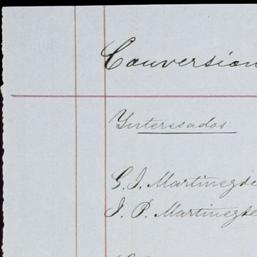 Conversion
Interesados
G. J. Martinez de
J. P. Martinez de